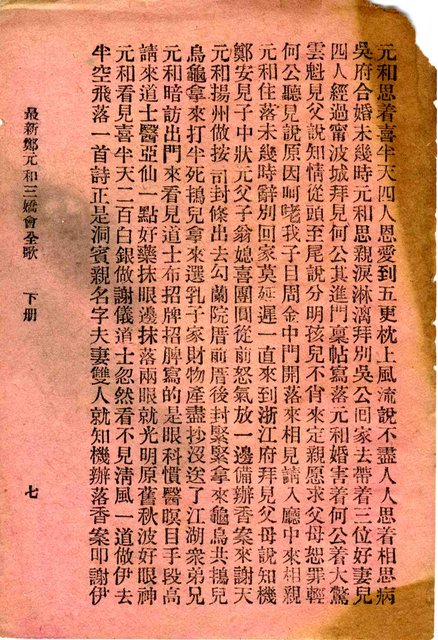 元和思着喜半天四人恩愛到五更枕上風流說不盡人人思着相思病
吳府合婚未幾時元和思親淚淋漓拜別吳公回家去帶着三位好妻兒
四人經過甯波城拜見何公其進門稟帖寫落元和婚害着何公着大驚
雲魁見父說知情從頭至尾說分明孩兒不肖來定親愿求父母恕罪輕
何公聽見說原因呵咾我子日周金中門開落來相見請入廳中來相親
元和住落未幾時辭別回家莫延遲一直來到浙江府拜見父母說知機
鄭安見子中狀元父子翁媳喜團圓從前怒氣放一邊備辦香案來謝天
元和揚州做按司封條出去勾蘭院厝前厝後封緊緊拿來龜烏共鴇兒
烏龜拿來打半死鴇兒拿來選乳子家財物產盡抄沒送了江湖衆弟兄
元和暗訪出門來看見道士布招牌招牌寫的是眼科慣醫暝目手段高
請來道士醫亞仙一點好藥抹眼邊抹落兩眼就光明原舊秋波好眼神
元和看見喜半天二百白銀做謝儀道士忽然看不見淸風一道做伊去
半空飛落一首詩正是洞賓親名字夫妻雙人就知機辦落香案叩謝伊
最新鄭元和三嬌會全歌　下册　七